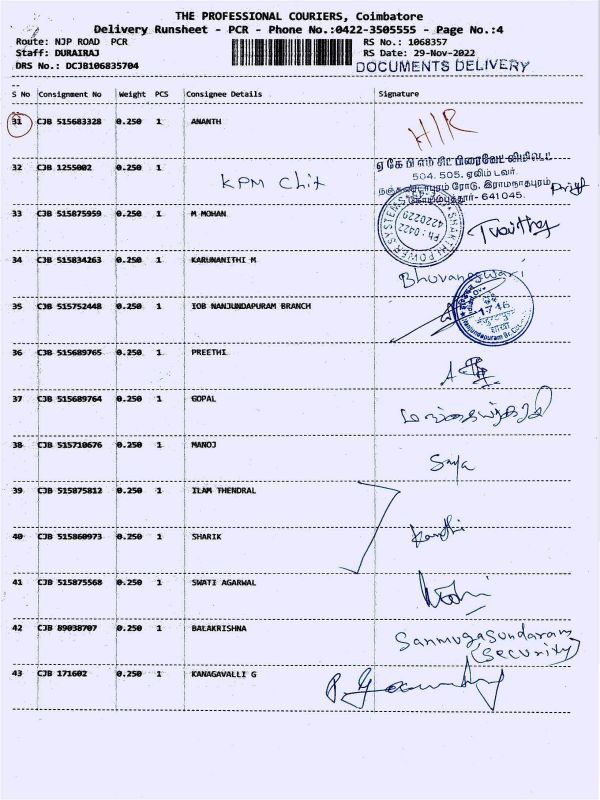 THE PROFESSIONAL COURIERS, Coimbatore
Delivery Runsheet - PCR - Phone No.:0422-3505555 - Page No.:4
Route: NJP ROAD PCR RS No.: 1068357
Staff: DURAIRAJ RS Date: 29-Nov-2022
DRS No.: DCJB106835704 DOCUMENTS DELIVERY
--
S No Consignment No Weight PCS Consignee Details Signature
31 CJB 515683328 0.250 1 ANANTH H/R
ஏ கே பி எம் சிட் பிரைவேட் லிமிடெட்
32 CJB 1255002 0.250 1 KPM Chit 504, 505, ஏலிம் டவர்,
நஞ்சுண்டாபுரம் ரோடு, இராமநாதபுரம்
கோயம்புத்தூர்- 641045.
33 CJB 515875959 0.250 1 M MOHAN
SHAKTHI POWER SYSTEMS
Ph : 0422
4220229
34 CJB 515834263 0.250 1 KARUNANITHI M Bhuvaneswari
35 CJB 515752448 0.250 1 IOB NANJUNDAPURAM BRANCH
1746
शाखा
Nanjundapuram Br.
36 CJB 515689765 0.250 1 PREETHI
37 CJB 515689764 0.250 1 GOPAL
38 CJB 515710676 0.250 1 MANOJ Saya
39 CJB 515875812 0.250 1 ILAM THENDRAL
40 CJB 515860973 0.250 1 SHARIK
41 CJB 515875568 0.250 1 SWATI AGARWAL
42 CJB 89038707 0.250 1 BALAKRISHNA Sanmugasundaram
(Security)
43 CJB 171602 0.250 1 KANAGAVALLI G